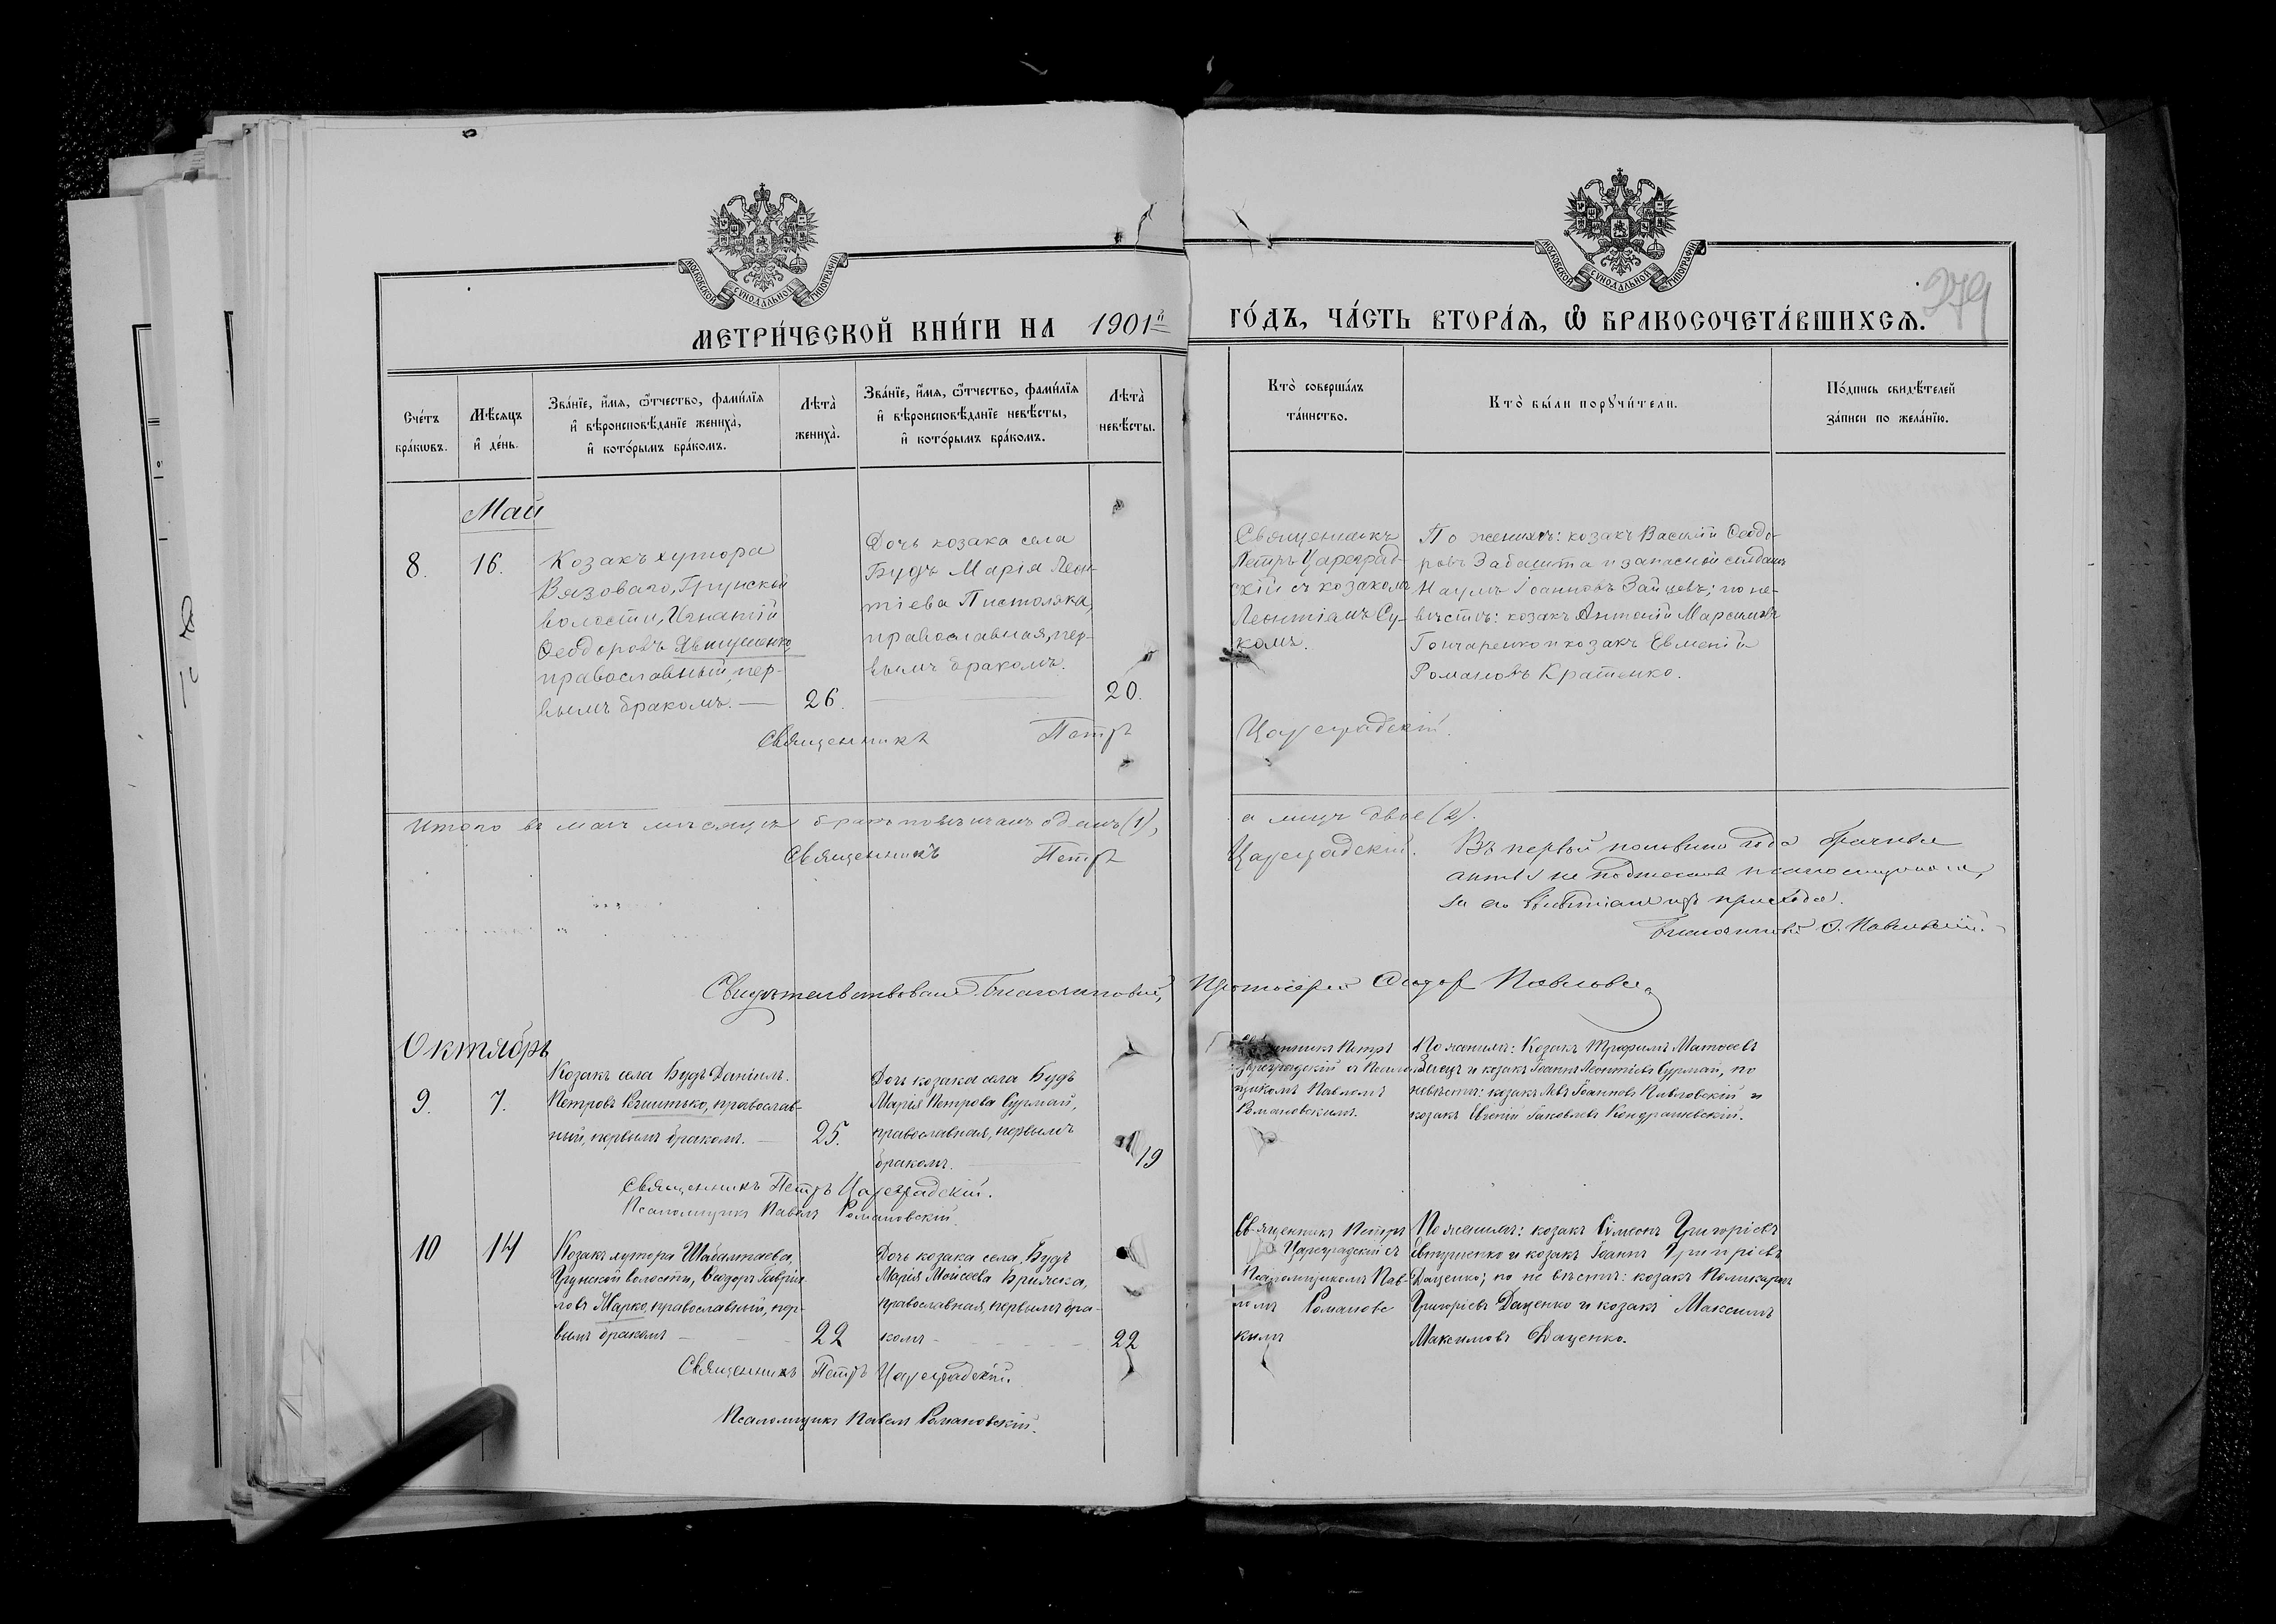 МОСКОВСКОЙ СѴНОДАЛЬНОЙ ТИПОГРАФІИ
МОСКОВСКОЙ СѴНОДАЛЬНОЙ ТИПОГРАФІИ
279
МЕТРИ́ЧЕСКОЙ КНИ́ГИ НА 1901й ГО́ДЪ, ЧА́СТЬ ВТОРА́Ѧ, Ѽ БРАКОСОЧЕТА́ВШИХСѦ.
Сче́тъ бра́кѡвъ.
Мѣ́сяцъ и҆ де́нь.
Зва́нїе, и҆́мя, ѻ҆́тчество, фами́лїя
и҆ вѣроисповѣ́данїе жениха̀,
и҆ кото́рымъ бра́комъ.
Лѣта̀ жениха̀.
Зва́нїе, и҆́мя, ѻ҆́тчество, фами́лїя
и҆ вѣроисповѣ́данїе невѣ́сты,
и҆ кото́рымъ бра́комъ.
Лѣта̀ невѣ́сты.
Кто̀ соверша́лъ
та́инство.
Кто̀ бы́ли порꙋчи́тели.
По́дпись свидѣ́телей
за́писи по жела́нїю.
Май
8.
16.
Козакъ хутора
Вязоваго, Грунской
волости, Игнатій
Ѳеодоровъ
православный, пер-
вымъ бракомъ. —
26.
Дочь козака села
Будъ Марія Леон-
тіева Пистоляка,
православная, пер-
вымъ бракомъ.
20.
Священникъ
Петръ Цареград-
скій съ козакомъ
Леонтіемъ Су-
комъ.
По женихѣ: козакъ Василій Ѳеодо-
ровъ Забашта и запасной солдатъ
Наумъ Іоанновъ Зайцевъ; по не-
вѣстѣ: козакъ Антоній
Гончаренко и козакъ Евменій
Романовъ Кратенко.
Священникъ Петръ Цареградскій.
Итого въ маѣ мѣсяцѣ бракъ повѣнчанъ одинъ (1), а лицъ двое (2).
Священникъ Петръ Цареградскій.
Въ первой половинѣ года брачные
акты не подписаны псаломщикомъ,
за его выбытіемъ изъ прихода.
Благочинный Ѳ. Павловскій.
Свидѣтельствовалъ Благочинный, Протоіерей Ѳеодоръ Павловск
Октябрь
9.
7.
Козакъ села Будъ Даніилъ
Петровъ Квитько, православ-
ный, первымъ бракомъ. —
25.
Дочь козака села Будъ
Марія Петрова Сурмай,
православная, первымъ
бракомъ.
19
Петръ
Цареградскій съ Псалом-
щикомъ Павломъ
Романовскимъ.
По женихѣ: Козакъ Трофимъ Матѳеевъ
Заецъ и козакъ Іоаннъ Леонтіевъ Сурмай, по
невѣстѣ: козакъ Левъ Іоанновъ Павловскій и
козакъ Евгеній Іаковлевъ Кондрашевскій.
Священникъ Петръ Цареградскій.
Псаломщикъ Павелъ Романовскій.
10
14
Козакъ хутора Шабалтаева,
Грунской волости, Ѳеодоръ Гаврии-
ловъ Марко, православный, пер-
вымъ бракомъ —
22
Дочь козака села Будъ
Марія Мойсеева Бряжка,
православная, первымъ бра-
комъ —
22
Священникъ Петръ
Цареградскій съ
Псаломщикомъ Пав-
ломъ Романовс
кимъ
По женихѣ: козакъ Сѵмеонъ Григоріевъ
Евтушенко и козакъ Іоаннъ Григоріевъ
Даценко; по не вѣстѣ: козакъ Поликарпъ
Григоріевъ Даценко и козакъ Максимъ
Максимовъ Даценко.
Священникъ Петръ Цареградскій.
Псаломщикъ Павелъ Романовскій.